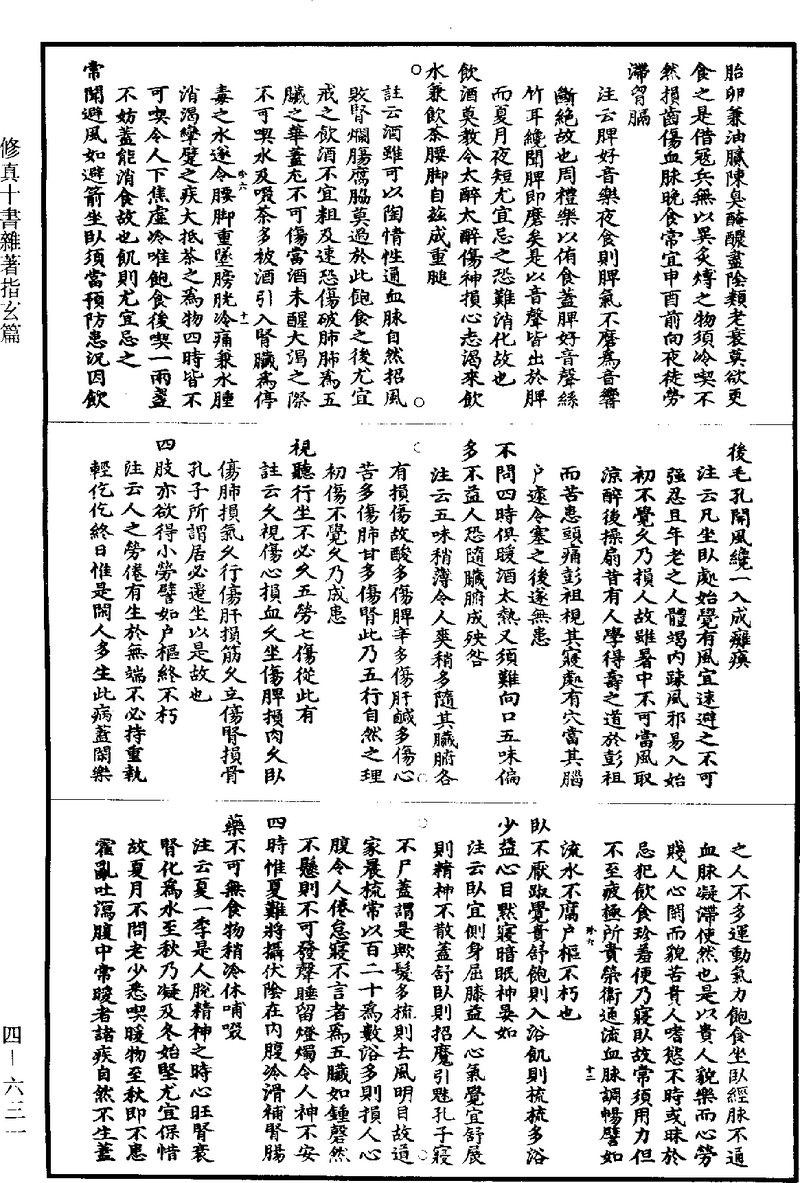 胎卵兼油膩陳臭醃醲盡陰類老衰莫欲更
食之是借寇兵無以異炙煿之物須冷喫不
然損齒傷血脉晚食常宜申酉前向夜徒勞
滯胷膈
注云脾好音樂夜食則脾氣不磨為音響
斷絶故也周禮樂以侑食蓋脾好音聲絲
竹耳纔聞脾即磨矣是以音聲皆出於脾
而夏月夜短尤宜忌之恐難消化故也
飲酒莫教令太醉太醉傷神損心志渴來飲
水兼飲茶腰脚自茲成重膇
註云酒雖可以陶情性通血脉自然招風
敗腎爛腸腐脇莫過於此飽食之後尤宜
戒之飲酒不宜粗及速恐傷破肺肺為五
臟之華蓋尤不可傷當酒未醒大渴之際
不可喫水及啜茶多被酒引入腎臟為停
毒之水遂令腰脚重墜膀胱冷痛兼水腫
消渴攣躄之疾大抵茶之為物四時皆不
可喫令人下焦虛冷唯飽食後喫一兩盞
不妨蓋能消食故也飢則尤宜忌之
常聞避風如避箭坐臥須當預防患況因飲
後毛孔開風纔一入成癱瘓
注云凡坐臥處始覺有風宜速避之不可
強忍且年老之人體竭内踈風邪易入始
初不覺久乃損人故雖暑中不可當風取
涼醉後操扇昔有人學得壽之道於彭祖
而苦患頭痛彭祖視其寢處有穴當其腦
户遽令塞之後遂無患
不問四時俱暖酒太熱又須難向口五味偏
多不益人恐隨臟腑成殃咎
注云五味稍薄令人爽稍多隨其臟腑各
有損傷故酸多傷脾辛多傷肝鹹多傷心
苦多傷肺甘多傷腎此乃五行自然之理
初傷不覺久乃成患
視聽行坐不必久五勞七傷從此有
註云久視傷心損血久坐傷脾損肉久臥
傷肺損氣久行傷肝損筋久立傷腎損骨
孔子所謂居必遷坐以是故也
四肢亦欲得小勞譬如户樞終不朽
注云人之勞倦有生於無端不必持重執
輕仡仡終日惟是閑人多生此病蓋閑樂
之人不多運動氣力飽食坐臥經脉不通
血脉凝滯使然也是以貴人貌樂而心勞
賤人心閑而貌苦貴人嗜慾不時或昧於
忌犯飲食珍羞便乃寢臥故常須用力但
不至疲極所貴榮衛通流血脉調暢譬如
流水不腐户樞不朽也
臥不厭踧覺貴舒飽則入浴飢則梳梳多浴
少益心目黙寢暗眠神晏如
注云臥宜側身屈膝益人心氣覺宜舒展
則精神不散蓋舒臥則招魔引魅孔子寢
不尸蓋謂是歟髮多梳則去風明目故道
家晨梳常以百二十為數浴多則損人心
腹令人倦怠寢不言者為五臟如鍾磬然
不懸則不可發聲睡留燈燭令人神不安
四時惟夏難將攝伏陰在内腹冷滑補腎腸
藥不可無食物稍冷休哺啜
注云夏一季是人脫精神之時心旺腎衰
腎化為水至秋乃凝及冬始堅尤宜保惜
故夏月不問老少悉喫暖物至秋即不患
霍亂吐瀉腹中常暖者諸疾自然不生蓋
修真十書雜著指玄篇
四—六二一